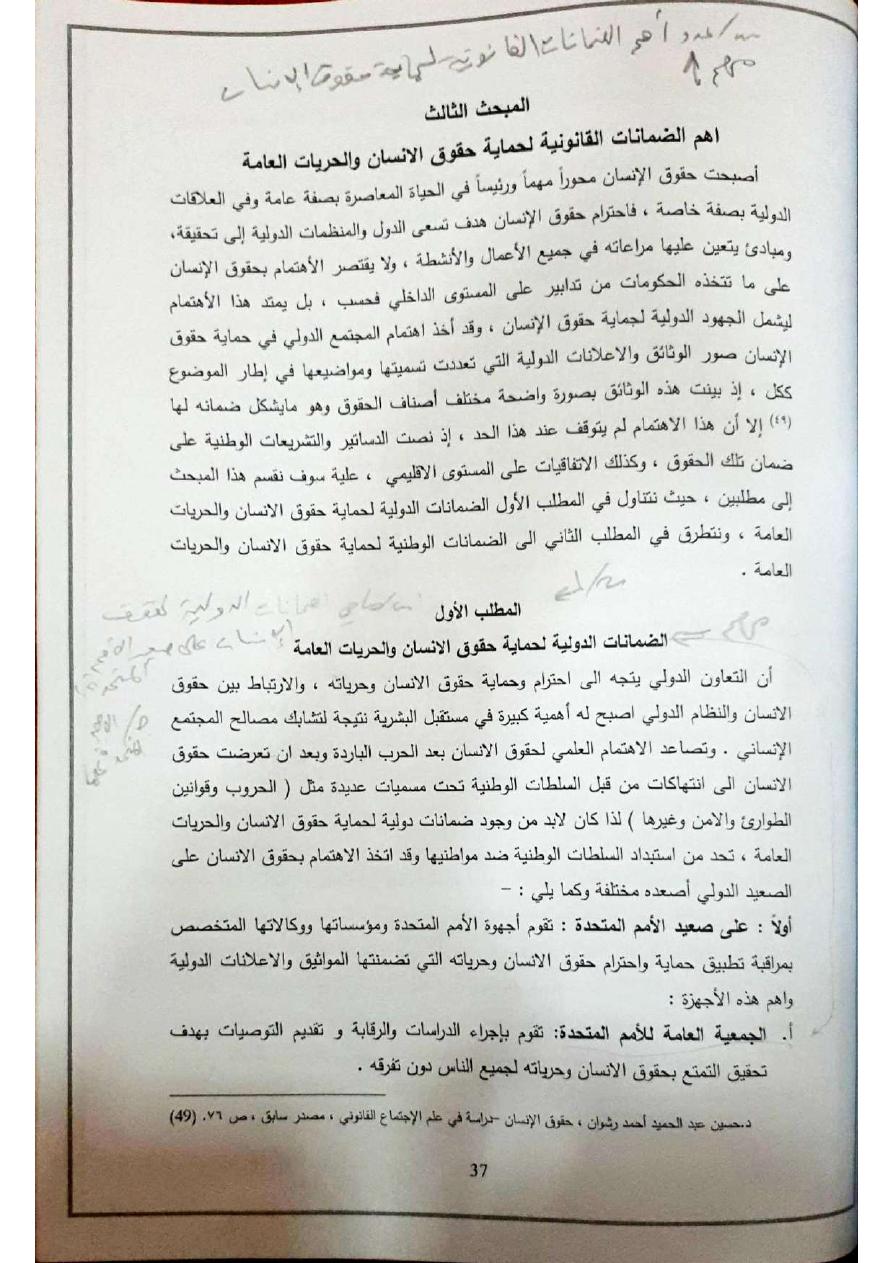 س/ عدد أهم الضمانات القانونية لحماية حقوق الانسان
مهم
المبحث الثالث
اهم الضمانات القانونية لحماية حقوق الانسان والحريات العامة
أصبحت حقوق الإنسان محوراً مهماً ورئيساً في الحياة المعاصرة بصفة عامة وفي العلاقات
الدولية بصفة خاصة ، فاحترام حقوق الإنسان هدف تسعى الدول والمنظمات الدولية إلى تحقيقة،
ومبادئ يتعين عليها مراعاته في جميع الأعمال والأنشطة ، ولا يقتصر الأهتمام بحقوق الإنسان
على ما تتخذه الحكومات من تدابير على المستوى الداخلي فحسب ، بل يمتد هذا الأهتمام
ليشمل الجهود الدولية لحماية حقوق الإنسان ، وقد أخذ اهتمام المجتمع الدولي في حماية حقوق
الإنسان صور الوثائق والاعلانات الدولية التي تعددت تسميتها ومواضيعها في إطار الموضوع
ككل ، إذ بينت هذه الوثائق بصورة واضحة مختلف أصناف الحقوق وهو مايشكل ضمانه لها
(٤٩) إلا أن هذا الاهتمام لم يتوقف عند هذا الحد ، إذ نصت الدساتير والتشريعات الوطنية على
ضمان تلك الحقوق ، وكذلك الاتفاقيات على المستوى الاقليمي ، علية سوف نقسم هذا المبحث
إلى مطلبين ، حيث نتناول في المطلب الأول الضمانات الدولية لحماية حقوق الانسان والحريات
العامة ، ونتطرق في المطلب الثاني الى الضمانات الوطنية لحماية حقوق الانسان والحريات
العامة .
المطلب الأول
مهم
الضمانات الدولية لحماية حقوق الانسان والحريات العامة
أن التعاون الدولي يتجه الى احترام وحماية حقوق الانسان وحرياته ، والارتباط بين حقوق
الانسان والنظام الدولي اصبح له أهمية كبيرة في مستقبل البشرية نتيجة لتشابك مصالح المجتمع
الإنساني . وتصاعد الاهتمام العلمي لحقوق الانسان بعد الحرب الباردة وبعد ان تعرضت حقوق
الانسان الى انتهاكات من قبل السلطات الوطنية تحت مسميات عديدة مثل ( الحروب وقوانين
الطوارئ والامن وغيرها ) لذا كان لابد من وجود ضمانات دولية لحماية حقوق الانسان والحريات
العامة ، تحد من استبداد السلطات الوطنية ضد مواطنيها وقد اتخذ الاهتمام بحقوق الانسان على
الصعيد الدولي أصعده مختلفة وكما يلي : –
أولاً : على صعيد الأمم المتحدة : تقوم أجهوة الأمم المتحدة ومؤسساتها ووكالاتها المتخصص
بمراقبة تطبيق حماية واحترام حقوق الانسان وحرياته التي تضمنتها المواثيق والاعلانات الدولية
واهم هذه الأجهزة :
أ. الجمعية العامة للأمم المتحدة: تقوم بإجراء الدراسات والرقابة و تقديم التوصيات بهدف
تحقيق التمتع بحقوق الانسان وحرياته لجميع الناس دون تفرقه .
د.حسين عبد الحميد أحمد رشوان ، حقوق الإنسان –دراسة في علم الإجتماع القانوني ، مصدر سابق ، ص ٧٦. (49)
37